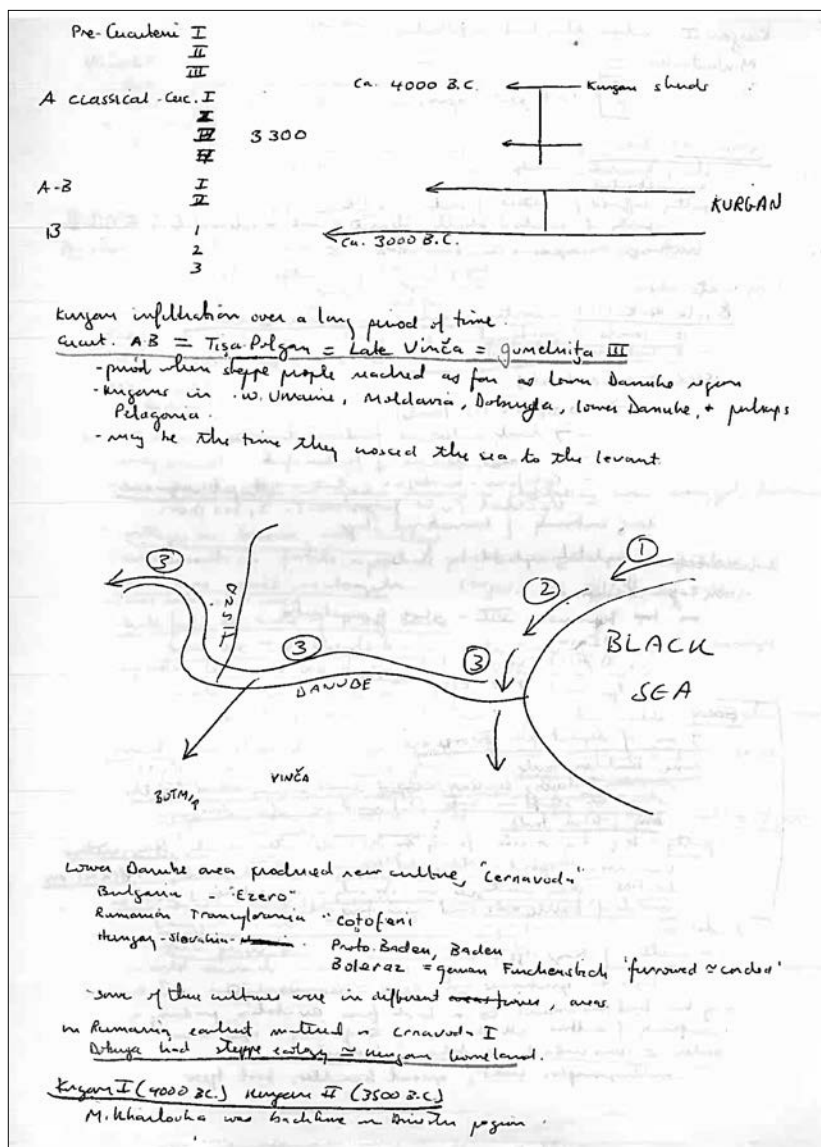 Pre-Cucuteni I
II
III
A Classical-Cuc. I
II
III 3300
IV
A-B I
II
B 1
2
3
Ca. 4000 B.C. Kurgan
KURGAN
Ca. 3000 B.C.
Kurgan infiltration over a long period of time.
Cucut. A-B = Tisza Polgar = Late Vinča = Gumelnița III
- period when steppe people reached as far as lower Danube region
- Kurgans in W. Ukraine, Moldavia, Dobrudja, lower Danube, + perhaps
Pelagonia.
- may be the time they crossed the sea to the levant.
1
3
2
TISZA
BLACK
3
3
SEA
DANUBE
VINČA
BUTMIR
Lower Danube area produced new culture, "Cernavoda"
Bulgaria - "Ezero"
Rumanian Transylvania "Coțofeni
Hungary-Slovakia-
Proto. Baden, Baden
Boleraz = german 'furrowed ≃ corded'
- some of these cultures were in different areas
in Rumania earliest material is Cernavoda I
had steppe ecology ≃ Kurgan homeland.
Kurgan I (4000 BC.) Kurgan II (3500 B.C.)
was in region.